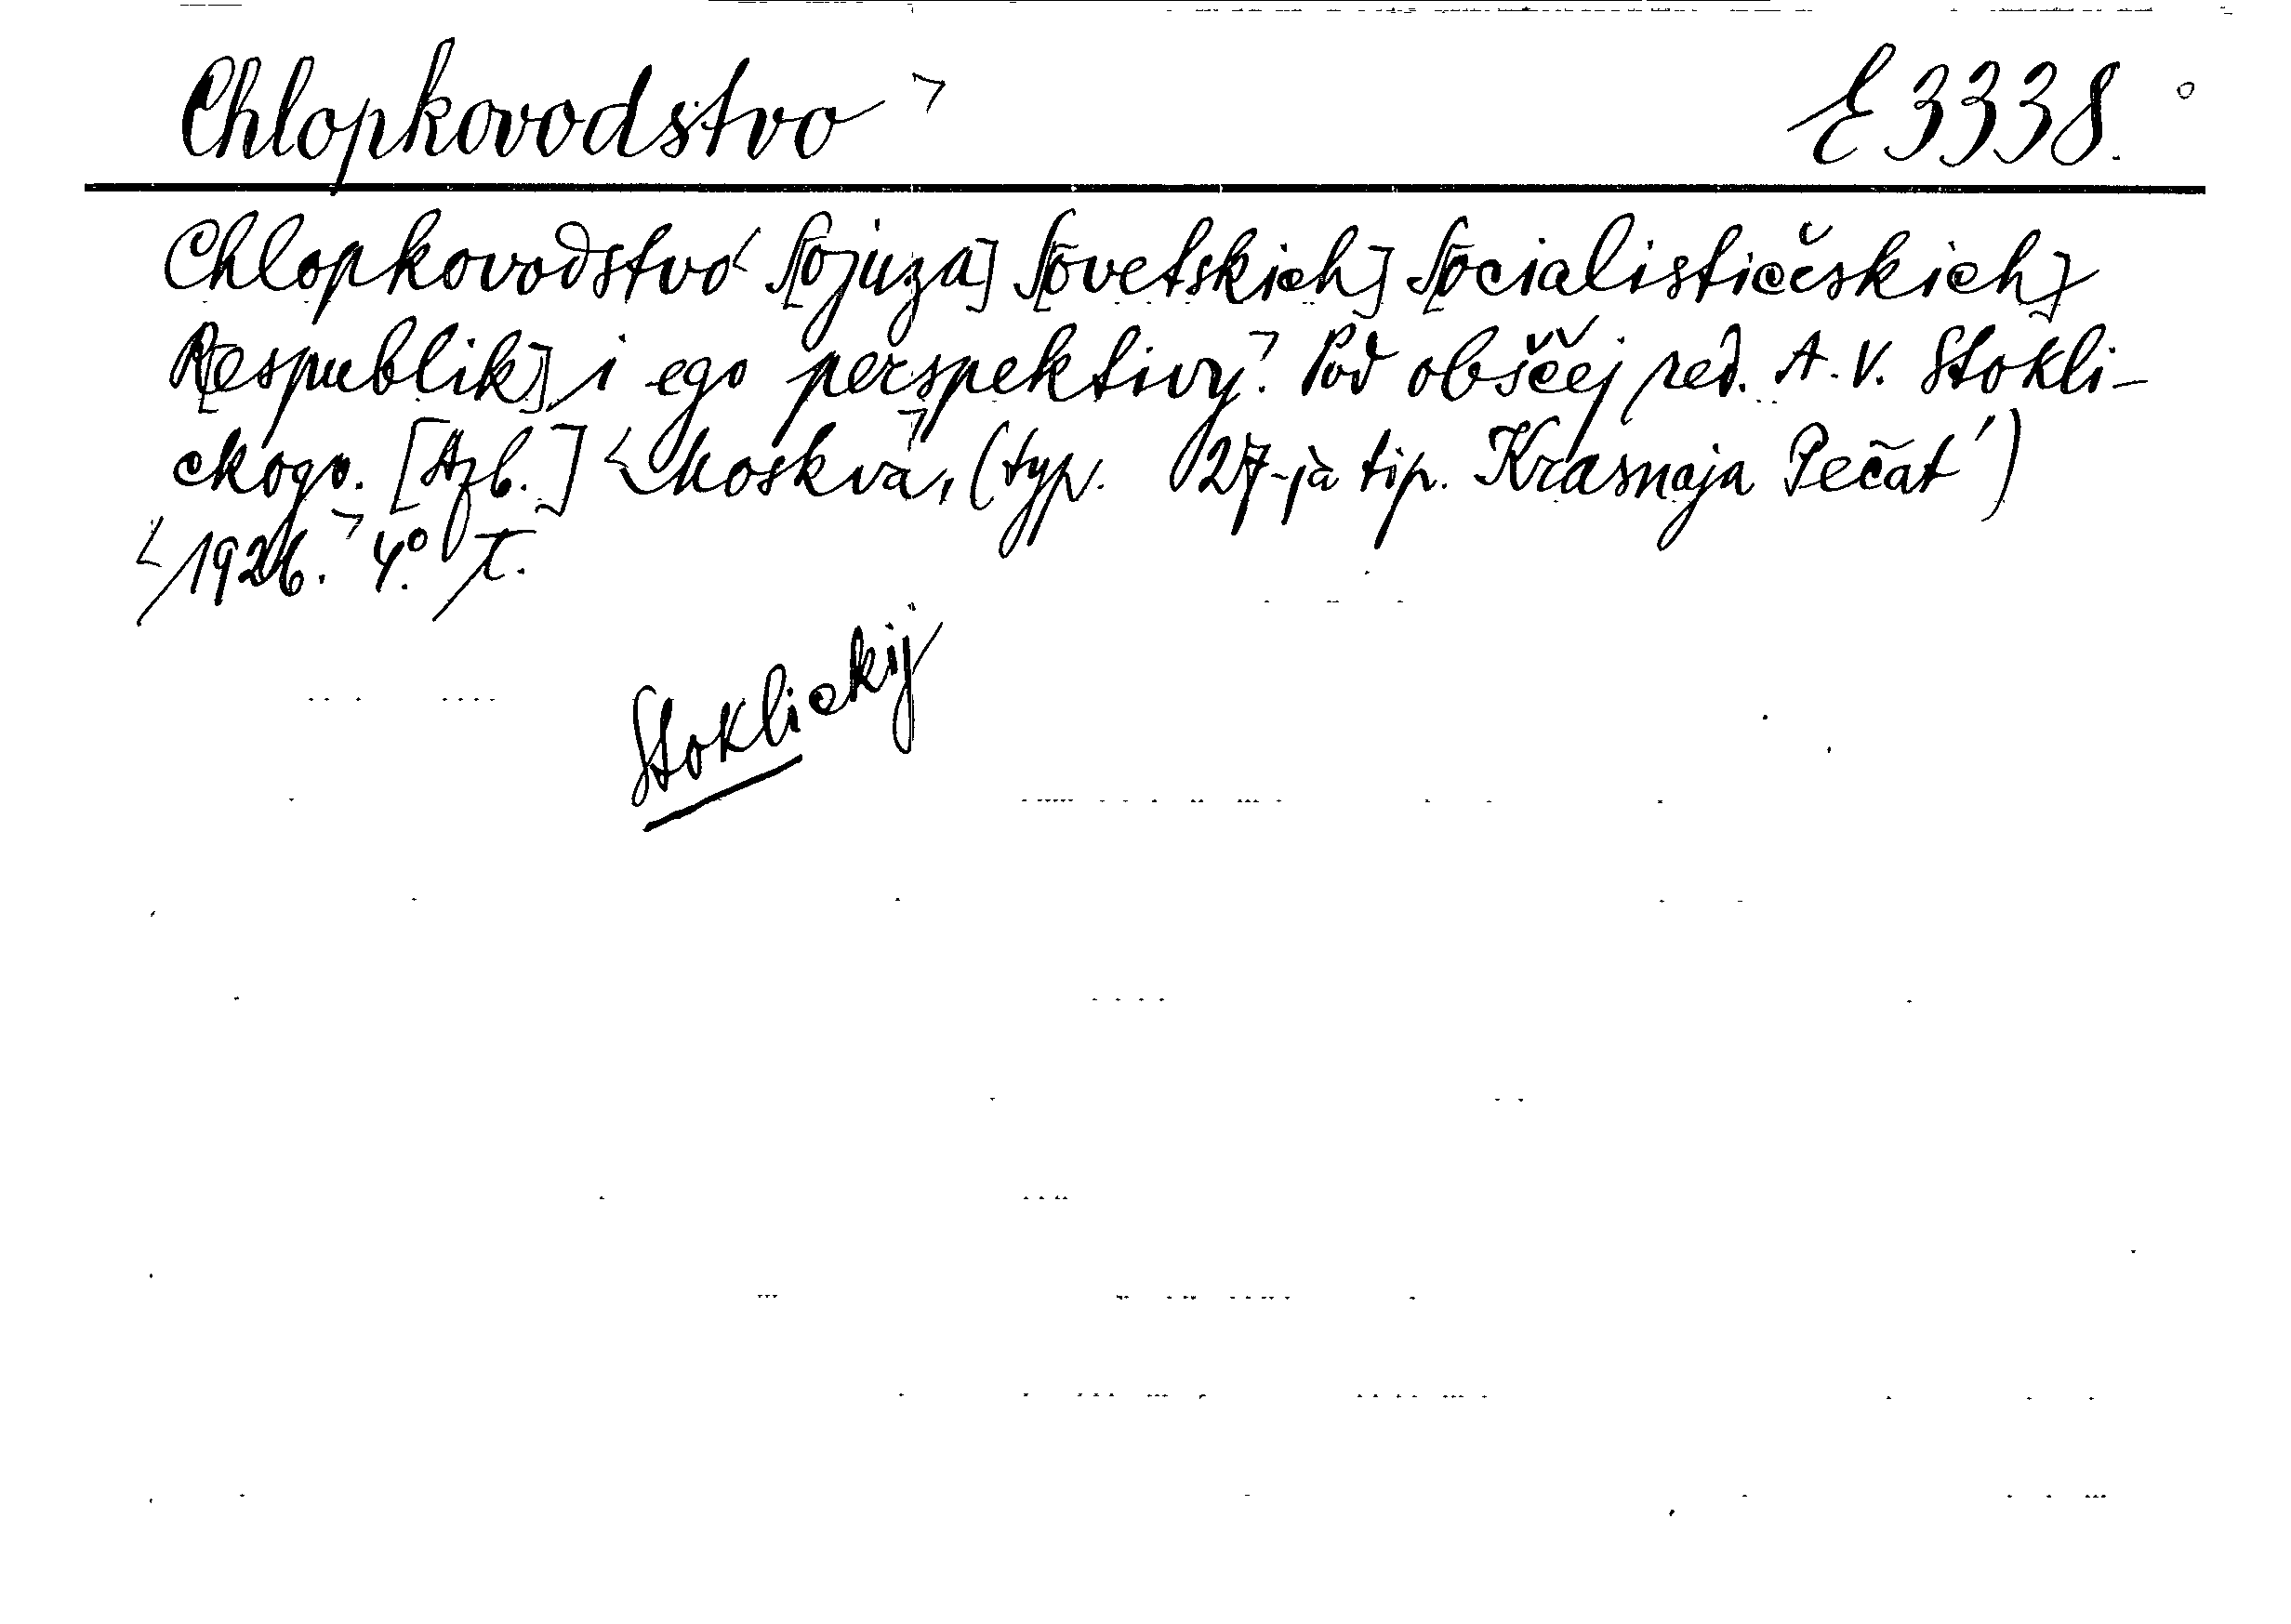 Chlopkovodstvo
E 3338.
Chlopkovodstvo S[ojuza] S[ovetskich] S[ocialističeskich]
R[espublik] i ego perspektivy. Pod obščej red. A. V. Stokli-
ckogo. [Azb.] Moskva, (typ. 27-ja tip. Krasnaja Pečat')
1926. 4° T.
Stoklickij